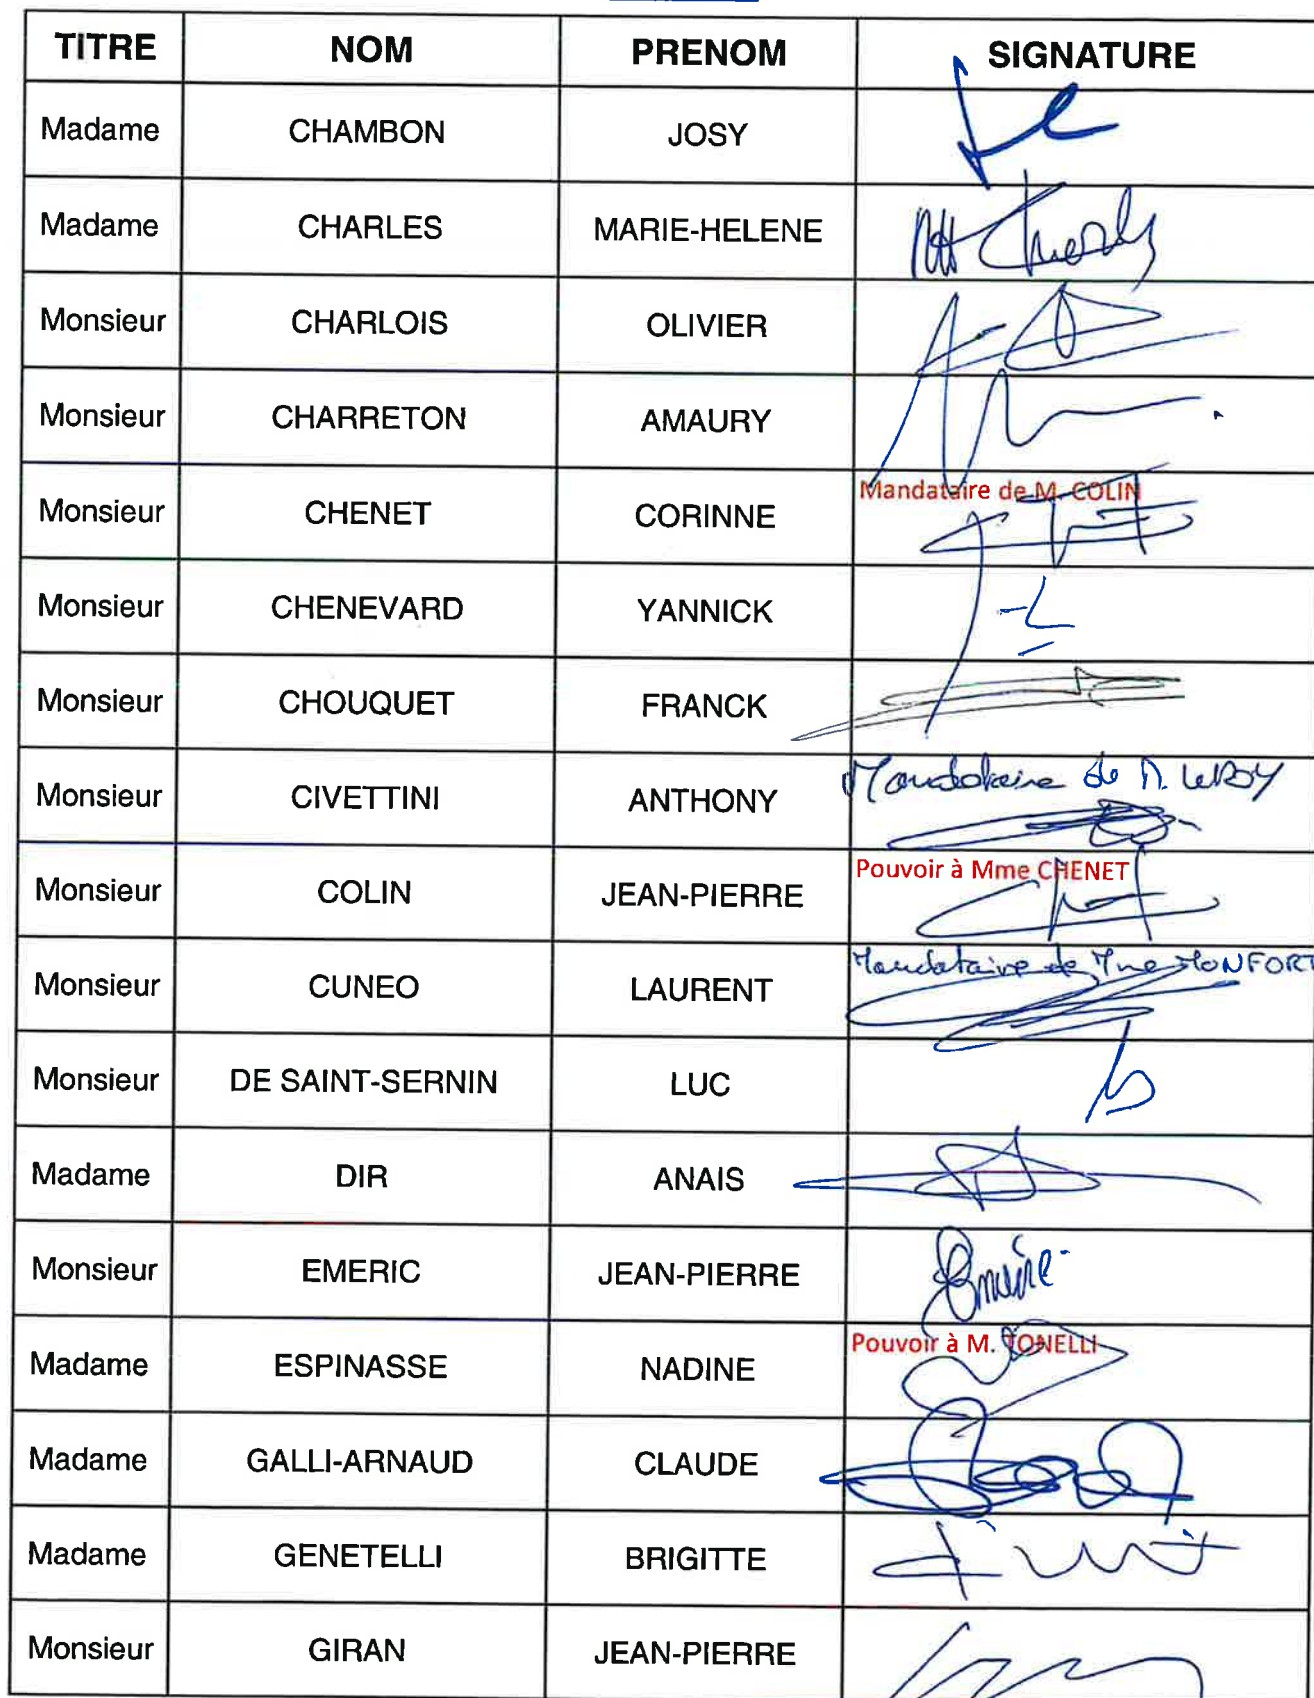 TITRE NOM PRENOM SIGNATURE
Madame CHAMBON JOSY
Madame CHARLES MARIE-HELENE MH Charles
Monsieur CHARLOIS OLIVIER
Monsieur CHARRETON AMAURY
Monsieur CHENET CORINNE Mandataire de M. COLIN
Monsieur CHENEVARD YANNICK
Monsieur CHOUQUET FRANCK
Monsieur CIVETTINI ANTHONY Mandataire de M. LEROY
Monsieur COLIN JEAN-PIERRE Pouvoir à Mme CHENET
Monsieur CUNEO LAURENT Mandataire de Mme MONFORT
Monsieur DE SAINT-SERNIN LUC
Madame DIR ANAIS
Monsieur EMERIC JEAN-PIERRE Emeric
Madame ESPINASSE NADINE Pouvoir à M. TONELLI
Madame GALLI-ARNAUD CLAUDE
Madame GENETELLI BRIGITTE
Monsieur GIRAN JEAN-PIERRE